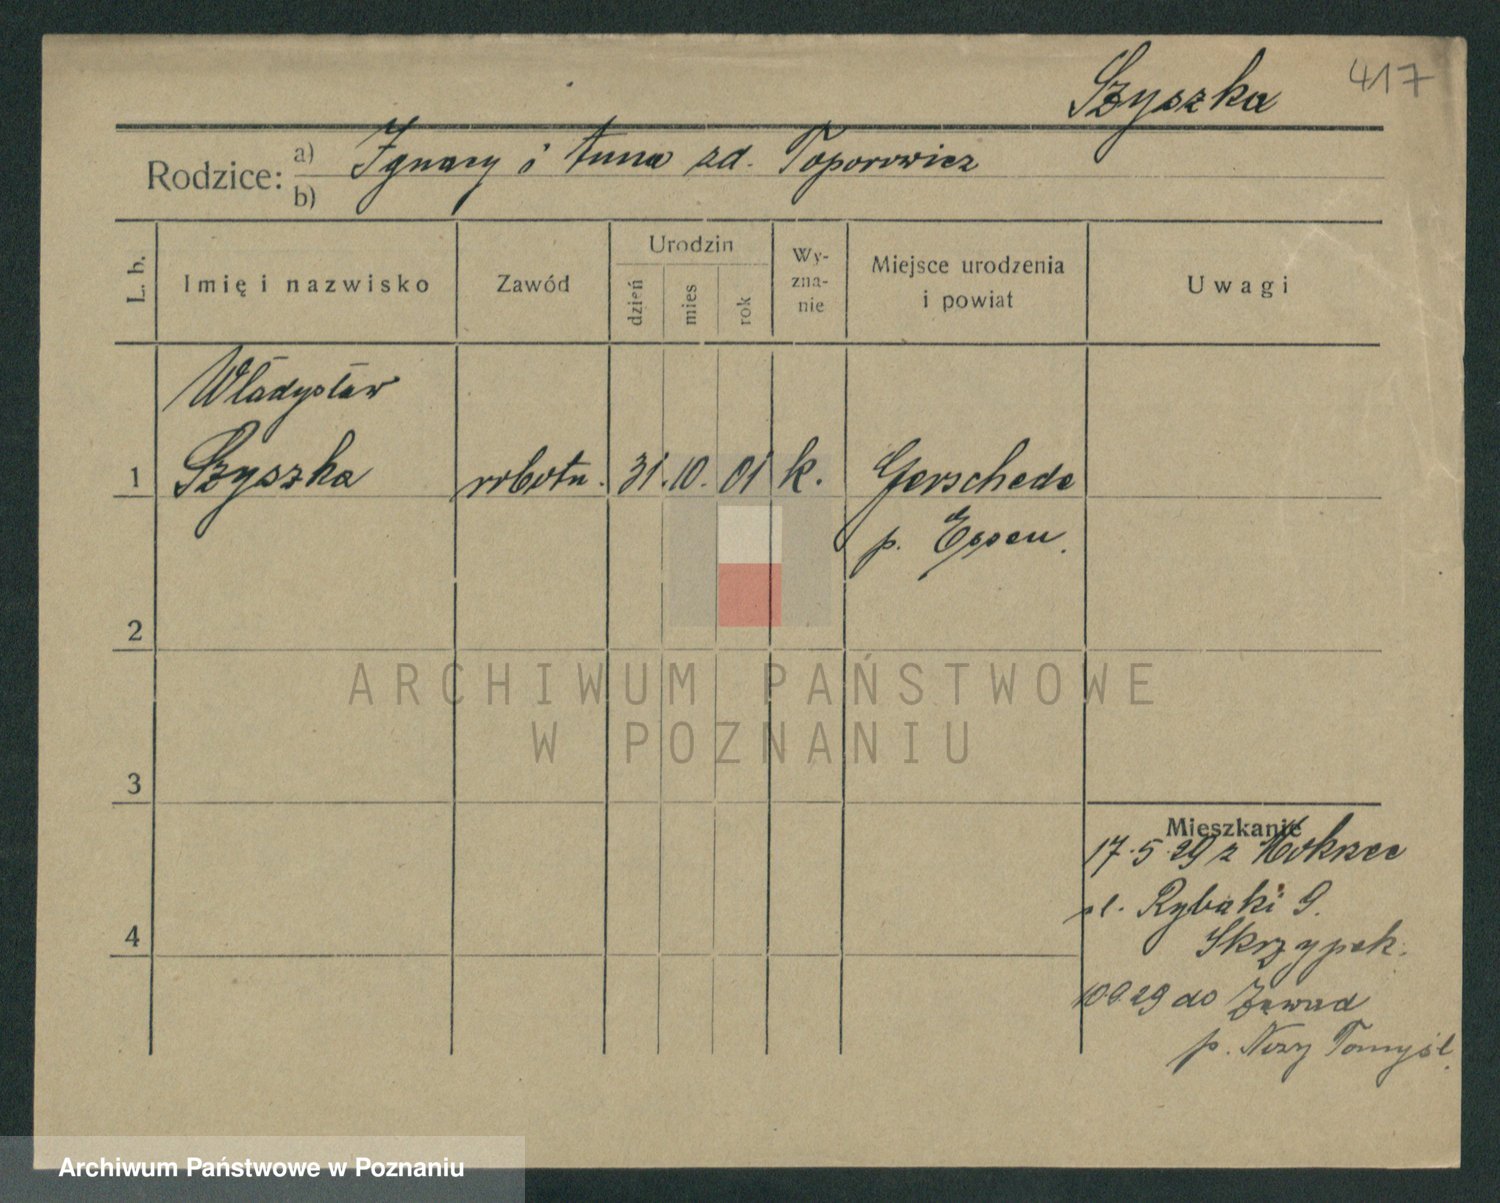 Szyszka 417
Rodzice: a) Ignacy i Anna zd. Toporowicz
b)
L. b. Imię i nazwisko Zawód Urodzin dzień mies rok Wyznanie Miejsce urodzenia i powiat Uwagi
Władysław
1 Szyszka robotn. 31. 10. 01 k. Gerschede
p. Essen.
2
ARCHIWUM PAŃSTWOWE
W POZNANIU
3
Mieszkanie
17.5.29 z Mokrzec
ul. Rybaki 9.
4
Skrzypek.
10 9 29 do
p. Nowy Tomyśl.
Archiwum Państwowe w Poznaniu